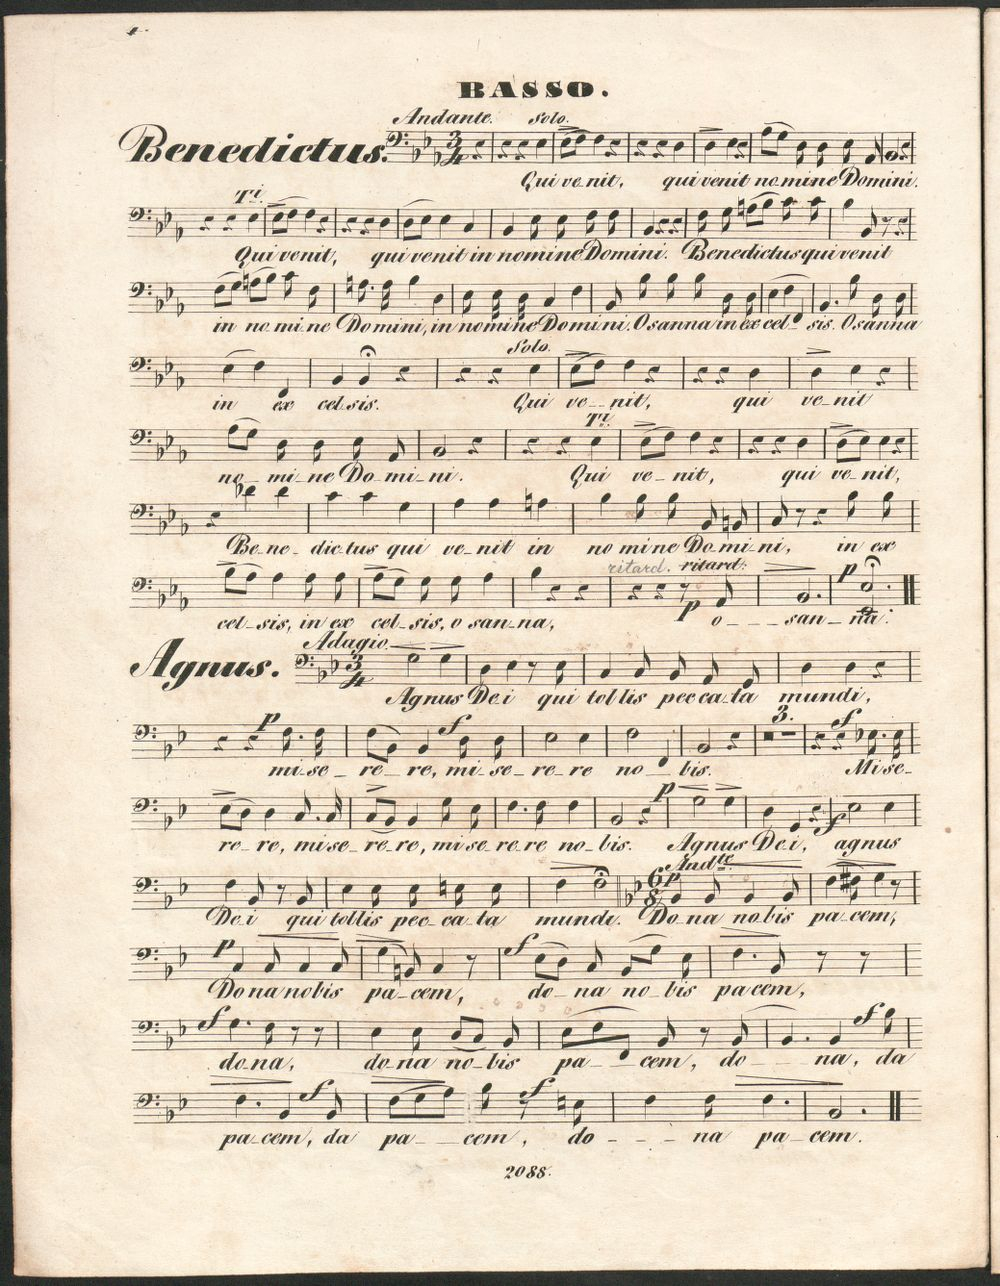 4
BASSO.
Andante. Solo.
Benedictus. 3/4
Qui ve nit, qui venit no mine Domini.
Ti.
Qui venit, qui venit in nomine Domini. Benedictus qui venit
in no mi ne Domini, in nomine Domini. Osanna in ex cel_ sis. Osanna
Solo.
in ex cel sis. Qui ve__nit, qui ve_nit
Ti.
no_mi_ne Do_mi_ni. Qui ve_nit, qui ve_nit,
Be_ne_dictus qui ve_nit in no mine Do_mi_ni, in ex
ritard. ritard:
p p
cel_sis, in ex cel_sis, o san_na, o___san_na.
Adagio.
Agnus. 3/4
Agnus De.i qui tol lis pec ca_ta mundi,
p f 3. f
mi_se_re_re, mi_se_re re no_bis. Mi se_
p f
re_re, mise_re_re, mi se re re no_bis. Agnus De.i, agnus
Andte.
6/8 p
De.i qui tollis pec_ca_ta mundi. Do na no bis pa_cem,
p f
Do na no bis pa_cem, do_na no_bis pa cem,
f f
do.na, do.na no_bis pa___cem, do__na, da
f f
pa_cem, da pa__cem, do___na pa_cem.
2088.